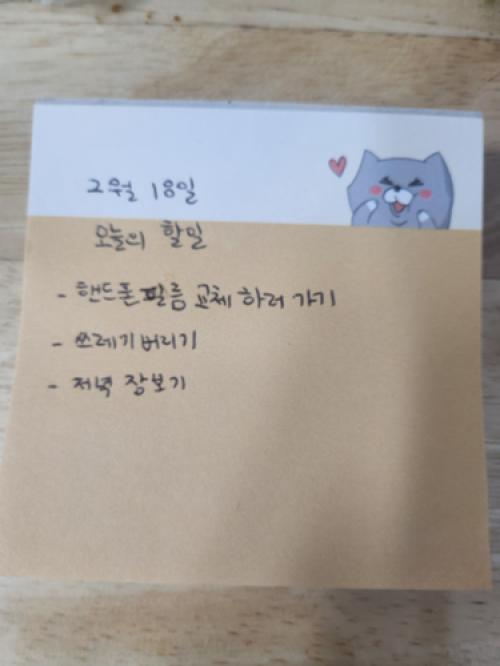 2월 18일
오늘의 할일
- 핸드폰 필름 교체 하러 가기
- 쓰레기 버리기
- 저녁 장보기